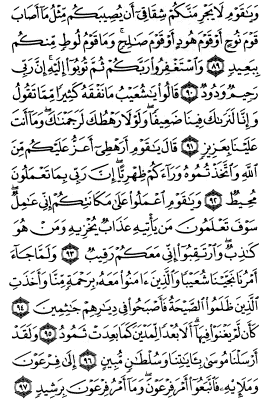 وَيَـٰقَوْمِ لَا يَجْرِمَنَّكُمْ شِقَاقِىٓ أَن يُصِيبَكُم مِّثْلُ مَآ أَصَابَ
قَوْمَ نُوحٍ أَوْ قَوْمَ هُودٍ أَوْ قَوْمَ صَـٰلِحٍ ۚ وَمَا قَوْمُ لُوطٍ مِّنكُم
بِبَعِيدٍ ٨٩ وَٱسْتَغْفِرُوا۟ رَبَّكُمْ ثُمَّ تُوبُوٓا۟ إِلَيْهِ ۚ إِنَّ رَبِّى
رَحِيمٌ وَدُودٌ ٩٠ قَالُوا۟ يَـٰشُعَيْبُ مَا نَفْقَهُ كَثِيرًا مِّمَّا تَقُولُ
وَإِنَّا لَنَرَىٰكَ فِينَا ضَعِيفًا ۖ وَلَوْلَا رَهْطُكَ لَرَجَمْنَـٰكَ ۖ وَمَآ أَنتَ
عَلَيْنَا بِعَزِيزٍ ٩١ قَالَ يَـٰقَوْمِ أَرَهْطِىٓ أَعَزُّ عَلَيْكُم مِّنَ
ٱللَّهِ وَٱتَّخَذْتُمُوهُ وَرَآءَكُمْ ظِهْرِيًّا ۖ إِنَّ رَبِّى بِمَا تَعْمَلُونَ
مُحِيطٌ ٩٢ وَيَـٰقَوْمِ ٱعْمَلُوا۟ عَلَىٰ مَكَانَتِكُمْ إِنِّى عَـٰمِلٌ ۖ
سَوْفَ تَعْلَمُونَ مَن يَأْتِيهِ عَذَابٌ يُخْزِيهِ وَمَنْ هُوَ
كَـٰذِبٌ ۖ وَٱرْتَقِبُوٓا۟ إِنِّى مَعَكُمْ رَقِيبٌ ٩٣ وَلَمَّا جَآءَ
أَمْرُنَا نَجَّيْنَا شُعَيْبًا وَٱلَّذِينَ ءَامَنُوا۟ مَعَهُۥ بِرَحْمَةٍ مِّنَّا وَأَخَذَتِ
ٱلَّذِينَ ظَلَمُوا۟ ٱلصَّيْحَةُ فَأَصْبَحُوا۟ فِى دِيَـٰرِهِمْ جَـٰثِمِينَ ٩٤
كَأَن لَّمْ يَغْنَوْا۟ فِيهَآ ۗ أَلَا بُعْدًا لِّمَدْيَنَ كَمَا بَعِدَتْ ثَمُودُ ٩٥ وَلَقَدْ
أَرْسَلْنَا مُوسَىٰ بِـَٔايَـٰتِنَا وَسُلْطَـٰنٍ مُّبِينٍ ٩٦ إِلَىٰ فِرْعَوْنَ
وَمَلَإِي۟هِۦ فَٱتَّبَعُوٓا۟ أَمْرَ فِرْعَوْنَ ۖ وَمَآ أَمْرُ فِرْعَوْنَ بِرَشِيدٍ ٩٧